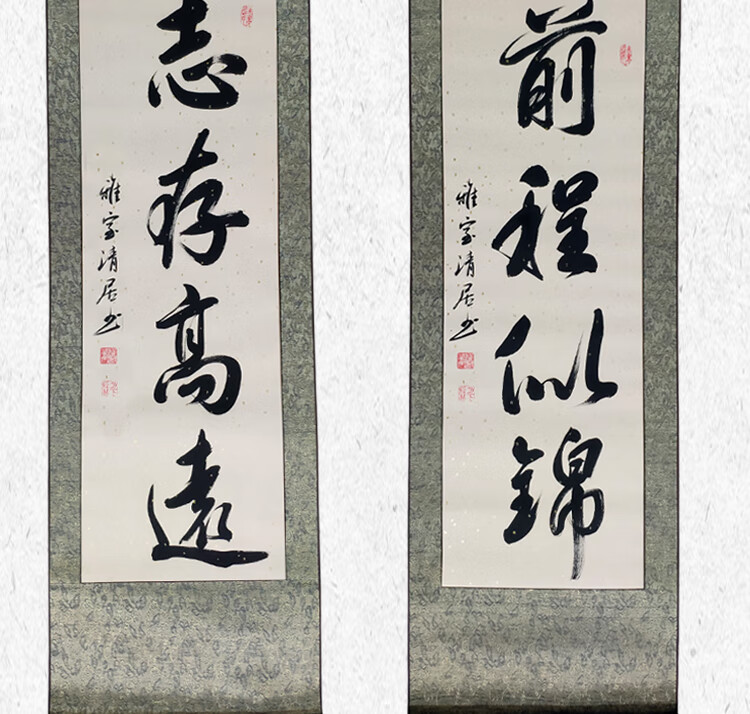 前程似錦
雅室清居书
志存高遠
雅室清居书